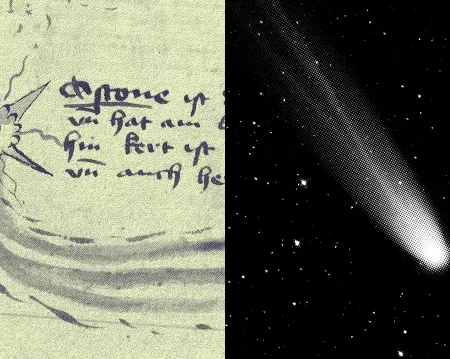 Astone ist
vn̄ hat ain
hin kert ist
vn̄ auch he